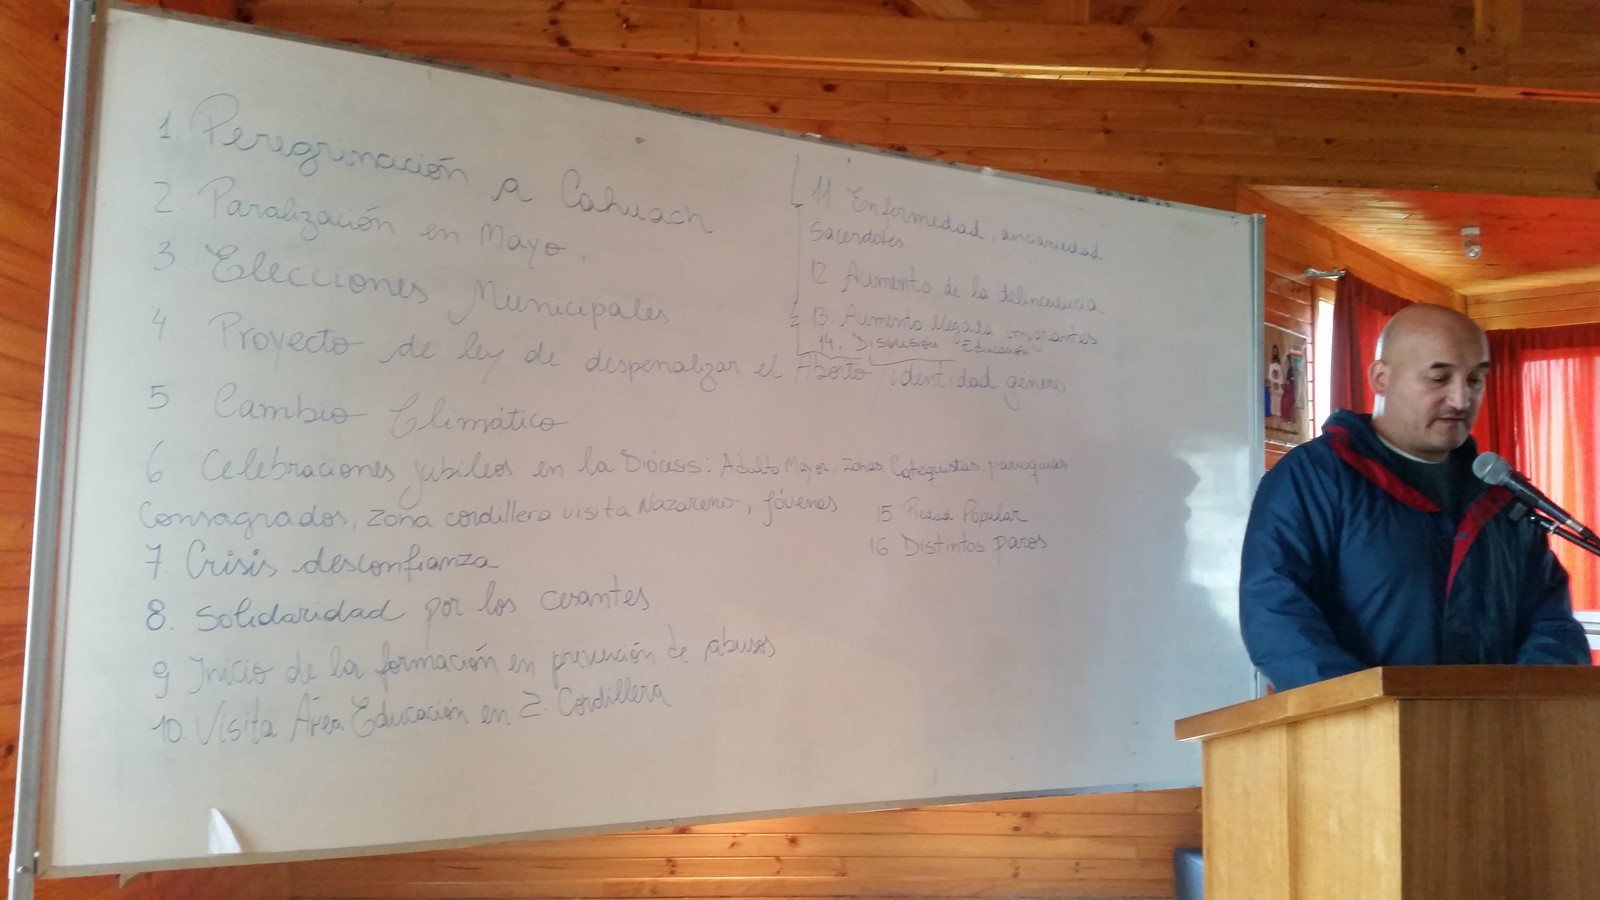 1. Peregrinación a Cahuach
2 Paralización en Mayo.
3 Elecciones Municipales
4 Proyecto de ley de despenalizar el Aborto / identidad género
5 Cambio Climático
6 Celebraciones jubileos en la Diócesis: Adulto Mayor, Zonas, Catequistas, parroquias
Consagrados, zona cordillera visita Nazareno, jóvenes
7. Crisis desconfianza
8. Solidaridad por los cesantes
9. Inicio de la formación en prevención de abusos
10. Visita Área Educación en Z. Cordillera
11. Enfermedad, ancianidad
Sacerdotes
12 Aumento de la delincuencia
13. Aumento llegada inmigrantes
14. Discusión Educación
15. Piedad Popular
16 Distintos paros